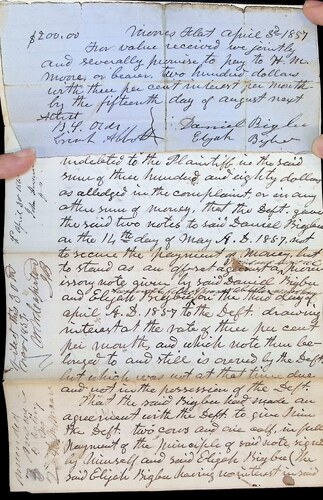 $200.00 Moores Flat April 3d 1857
For value received we jointly
and severally promise to pay to H. M.
Moore or bearer two hundred dollars
with three per cent interest per month
by the fifteenth day of august next
Attest
B. F. Olds Daniel Bigbee
Enoch Abbott Elijah Bigbee
indebted to the Plaintiff in the said
sum of three hundred and eighty dollars
as alledged in the complaint, or in any
other sum of money, that the Deft. gave
the said two notes to said Daniel Bigbee
on the 14th day of May A.D. 1857, not
to secure the payment of money, but
to stand as an offset against a prom-
issory note given by said Daniel Bigbee
and Elijah Bigbee on the third day of
april A.D. 1857 to the Deft. drawing
interest at the rate of three per cent
per month, and which note then be-
longed to and still is owned by the Deft.
but which was not at that time due
and not in the possession of the Deft.
That the said Bigbee had made an
agreement with the Deft. to give him
the Deft. two cows and one calf, in full
payment of the principle of said note signed
by himself and said Elijah Bigbee (the
said Elijah Bigbee having no interest in said